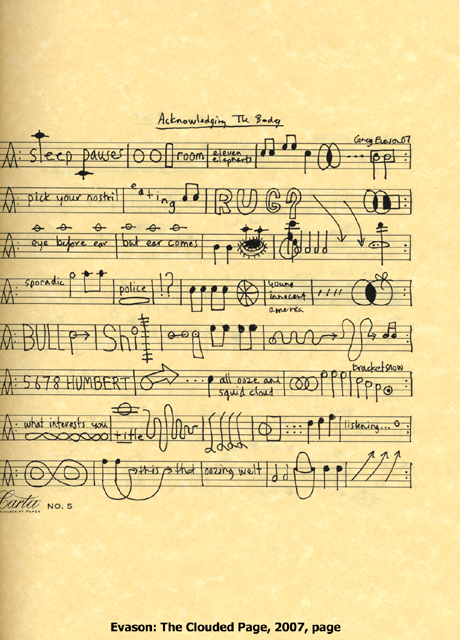 Acknowledging The Body
Greg Evason 07
sleep pauses room eleven elephants
pick your nostril eating RUG?
eye before ear but ear comes
sporadic police !? young innocent america
BULL Shit
5678 HUMBERT all ooze and squid cloud
what interests you title listening...
this that oozing welt
Carta NO. 5
Evason: The Clouded Page, 2007, page